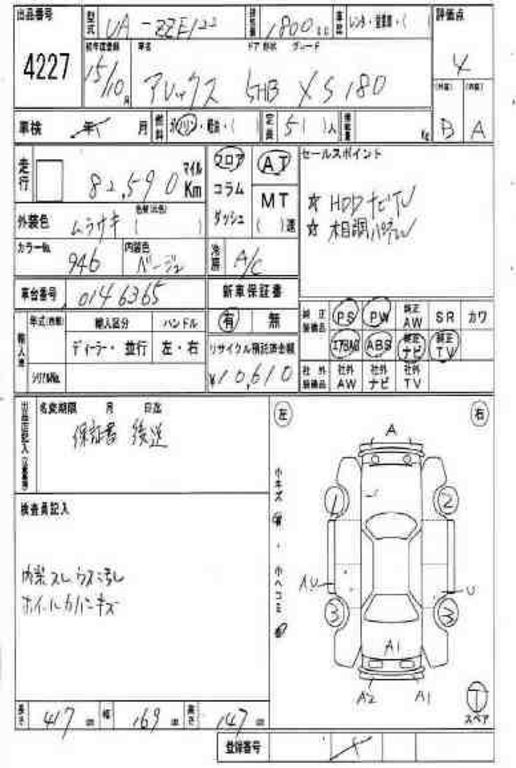 出品番号 4227
型式 UA-ZZE122 排気量 1800cc 車歴 レンタ・営業車・( )
評価点 4
初年度登録 15/10月 車名 アレックス ドア 形状 グレード 5HB XS180
(外装) B (内装) A
車検 年 月 燃料 ガソリン・軽油・( ) 定員 5人 積載量 Kg
走行 82,590 マイル Km
フロア コラム ダッシュ
AT MT ( )速
セールスポイント
☆ HDDナビTV
☆ 木目調パネル
外装色 ムラサキ 色替(元色) ( )
カラーNo. 946 内装色 ベージュ
冷房 A/C
車台番号 0146365
新車保証書 有 無
純正装備品 PS PW 純正AW SR カワ
エアBAG ABS 純正ナビ 純正TV
社外装備品 社外AW 社外ナビ 社外TV
輸入車 年式(西暦) 輸入区分 ハンドル
ディーラー・並行 左・右
シリアルNo.
リサイクル預託済金額 ¥10,610
名変期限 月 日迄
保証書 後送
検査員記入
内装スレ ウス汚レ
ホイールカバーキズ
左 右
小キズ ・ 小ヘコミ
A
1 2
AU U
3 3
A1
A2 A1
T スペア
長さ 417cm 幅 169cm 高さ 147cm
登録番号